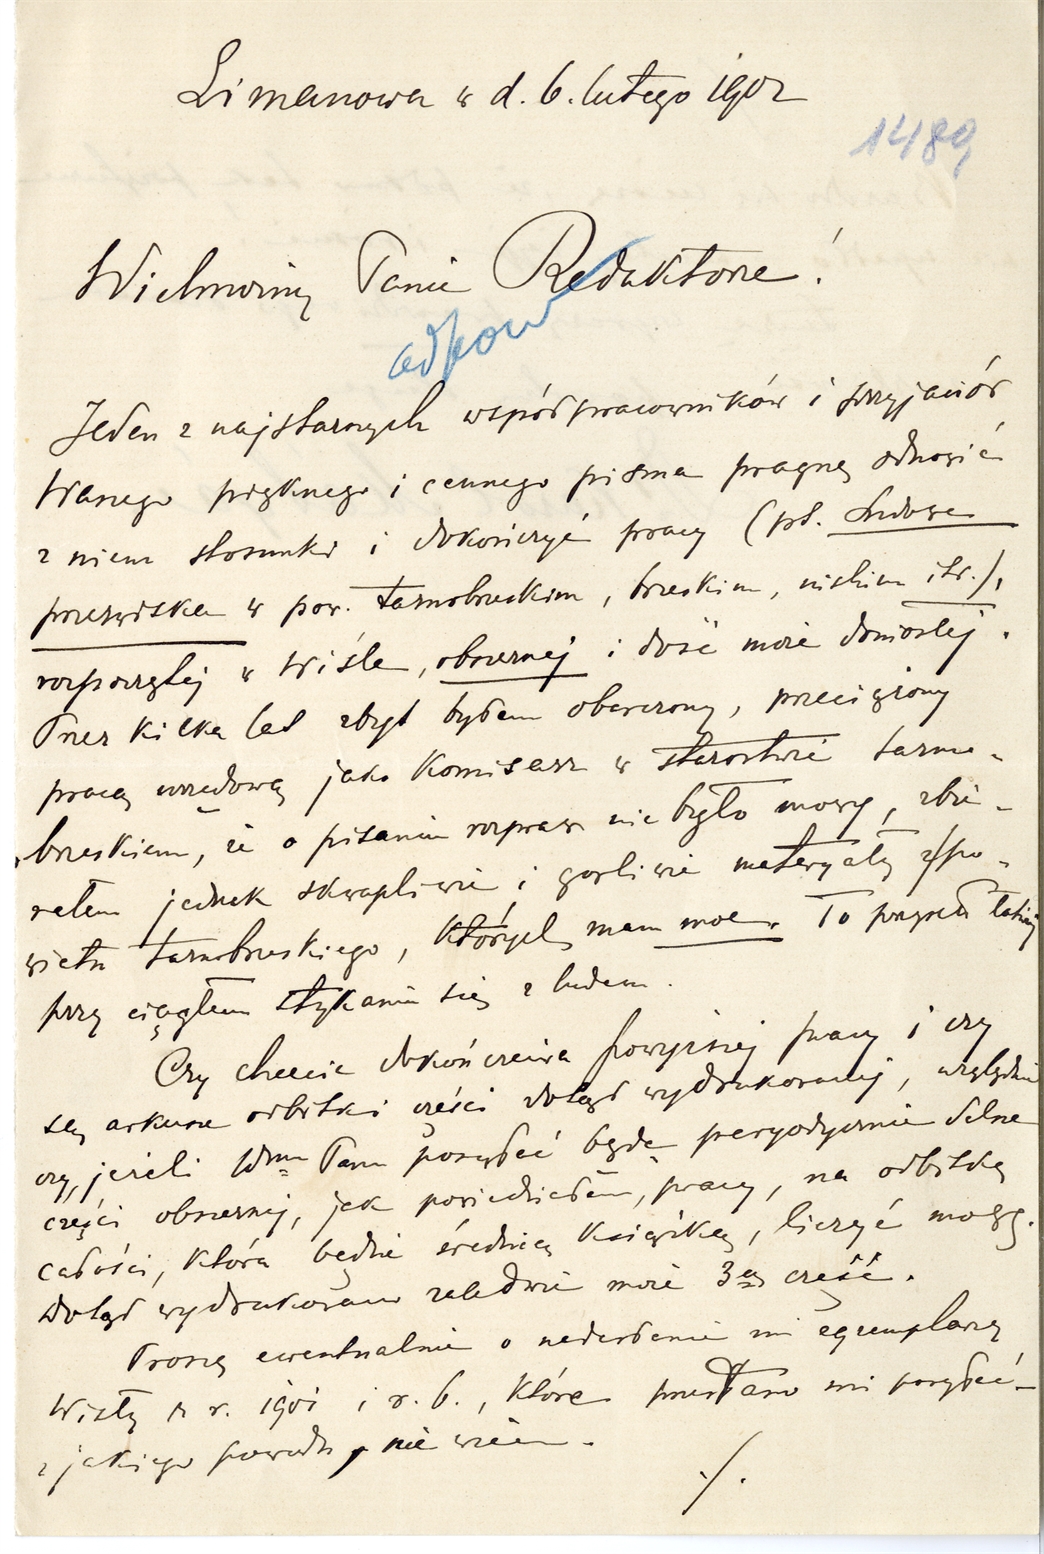 Limanowa w d. 6. lutego 1902
1489
Wielmożny Panie Redaktorze!
odpow
Jeden z najstarszych współpracowników i przyjaciół
Waszego pięknego i cennego pisma pragnę odnowić
z niem stosunki i dokończyć pracy (pt. Ludowe
przezwiska w pow. tarnobrzeskim, brzeskim, niskim itd.),
rozpoczętej w Wiśle, obszernej i dość może doniosłej.
Przez kilka lat zbyt byłem obarczony, przeciążony
pracą urzędową jako komisarz w starostwie tarno-
brzeskiem, że o pisaniu rozpraw nie było mowy, zbie-
rałem jednak skwapliwie i gorliwie materyały z po-
wiatu tarnobrzeskiego, których mam moc. To przyszło łatwiej
przy ciągłem stykaniu się z ludem.
Czy chcecie dokończenia powyższej pracy i czy
są arkusze odbitki części dotąd wydrukowanej, względnie
czy, jeżeli Wmu Panu posyłać będę peryodycznie dalsze
części obszernej, jak powiedziałem, pracy, na odbitkę
całości, która będzie średnią książką, liczyć mogę.
Dotąd wydrukowano zaledwie może 3ą część.
Proszę ewentualnie o nadesłanie mi egzemplarzy
Wisły z r. 1901 i r. b., które przestano mi posyłać –
z jakiego powodu, nie wiem.
./.